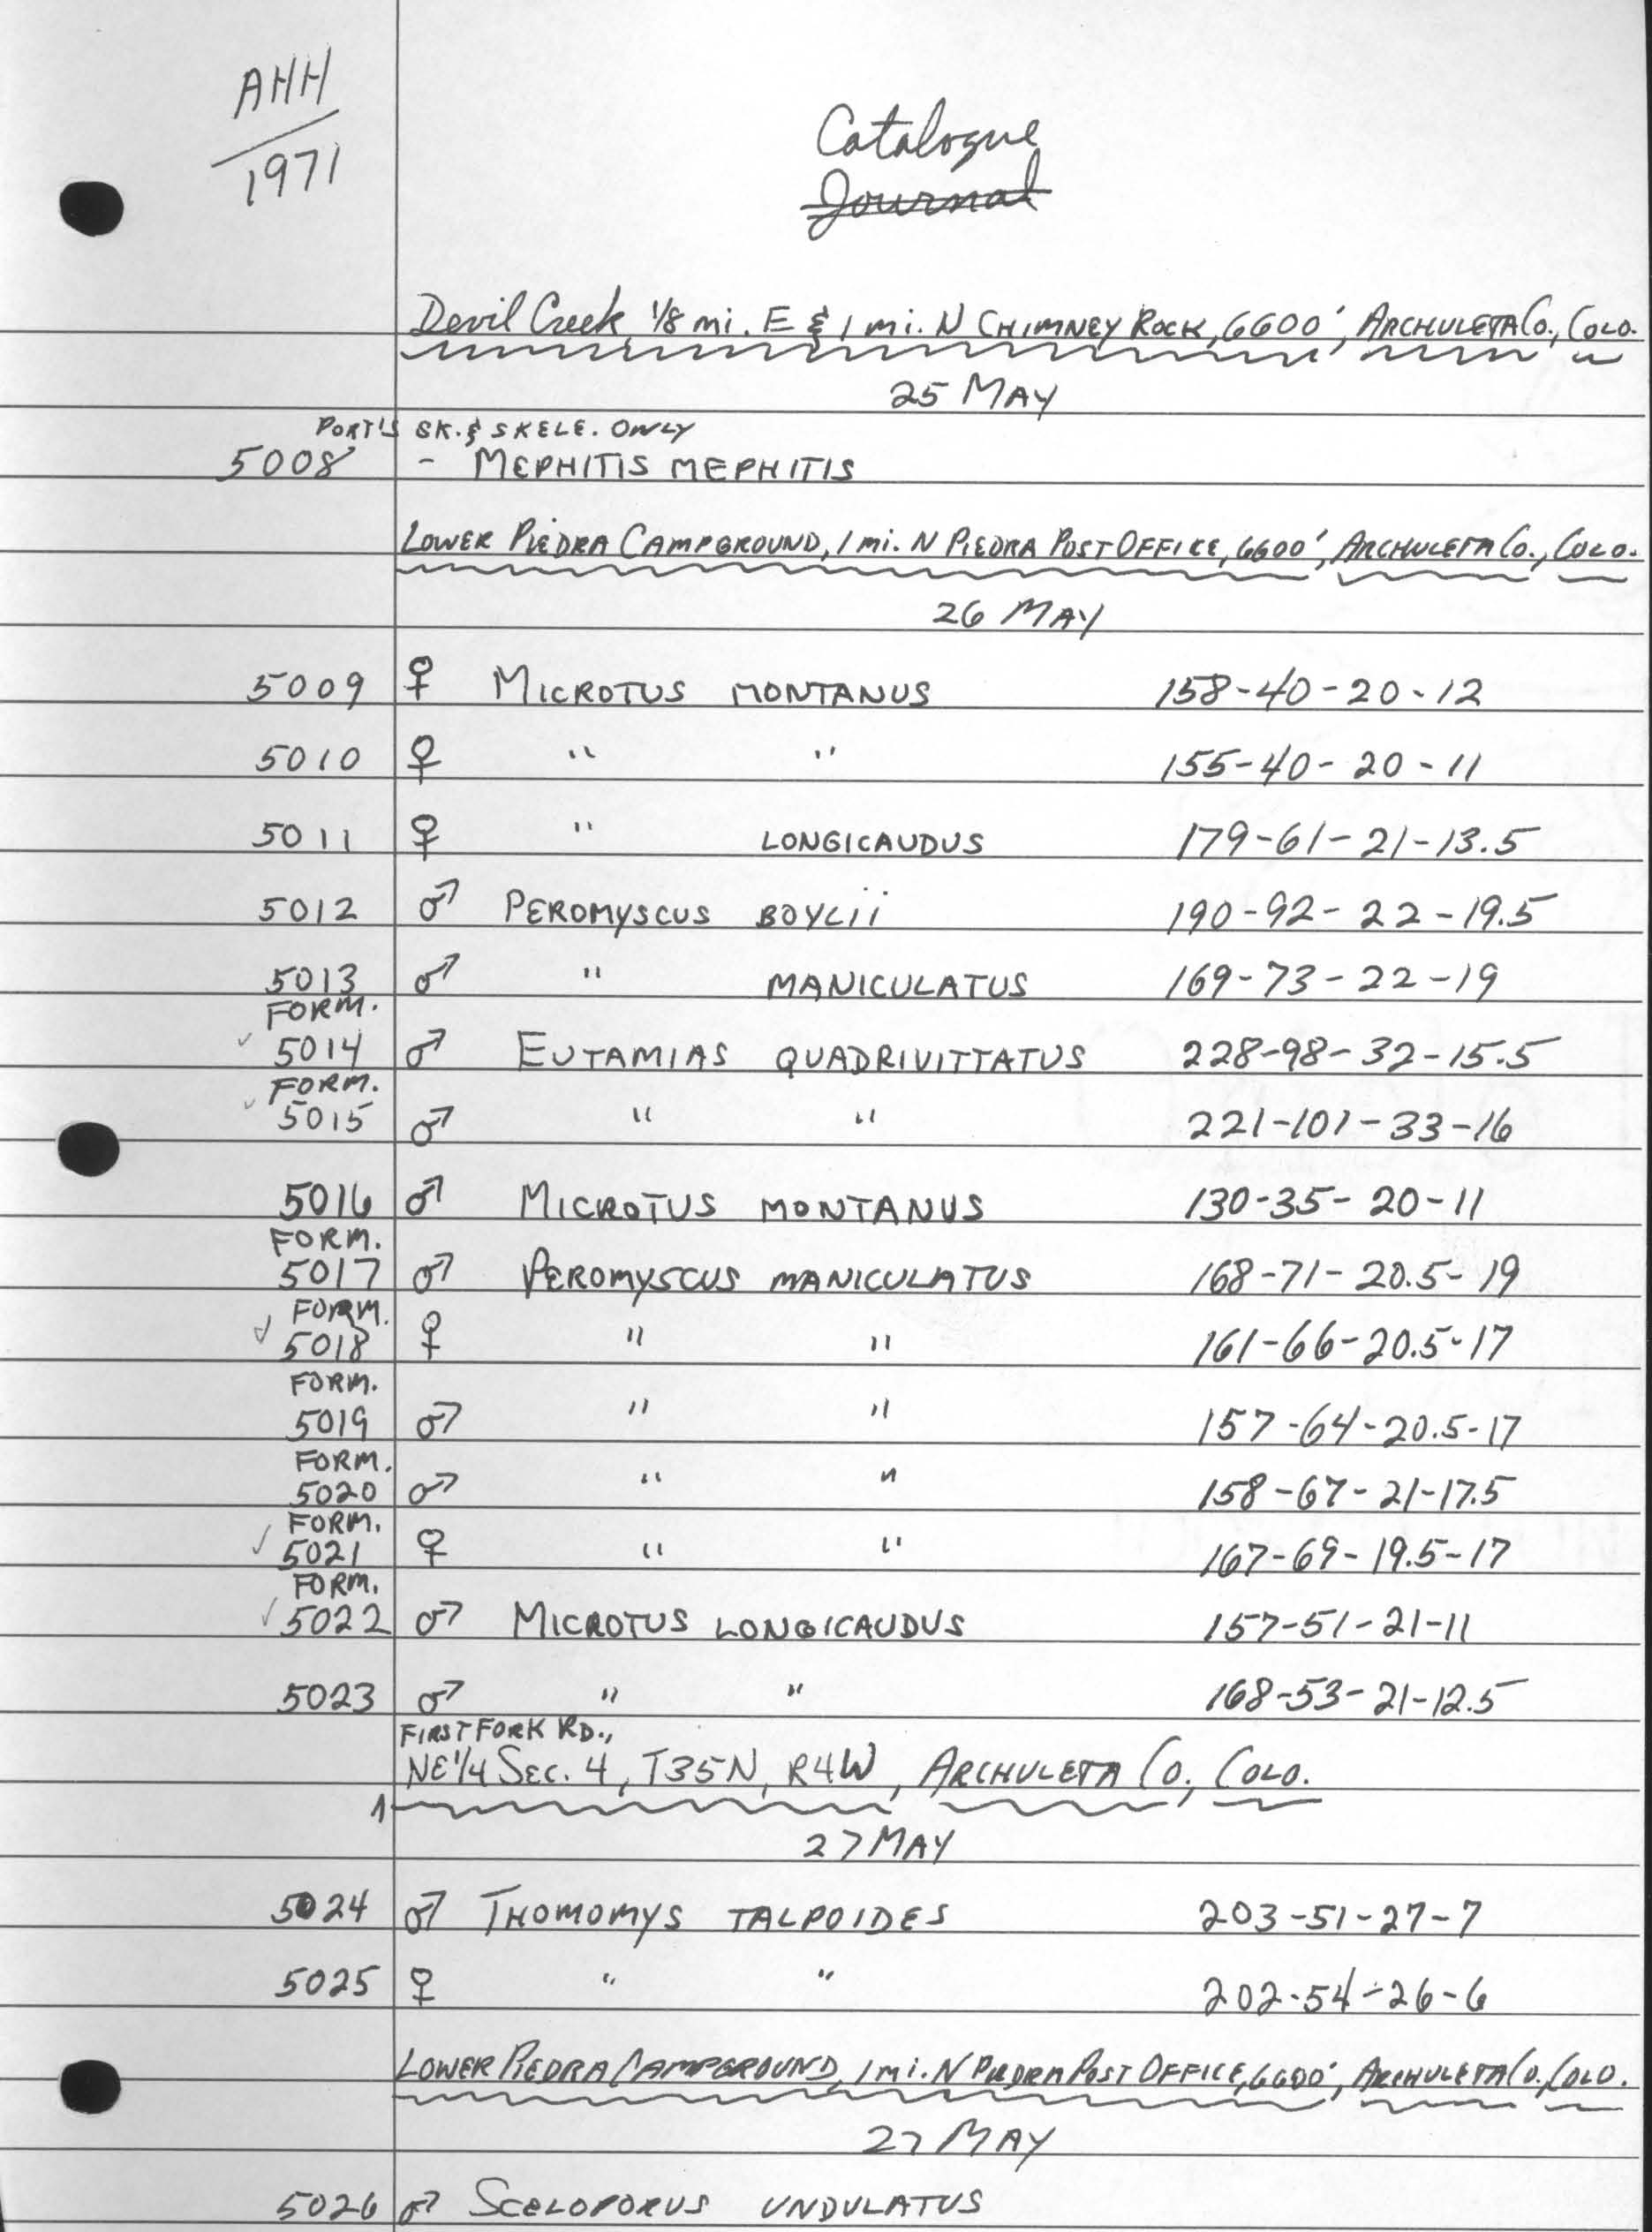 AHH
1971
Catalogue
Journal
Devil Creek, 1/8 mi. E & 1 mi. N CHIMNEY ROCK, 6600', ARCHULETA Co., COLO.
25 MAY
PORT'S SK. & SKELE. ONLY
5008 - MEPHITIS MEPHITIS
LOWER PIEDRA CAMPGROUND, 1 mi. N PIEDRA POST OFFICE, 6600', ARCHULETA Co., COLO.
26 MAY
5009 ♀ MICROTUS MONTANUS 158-40-20-12
5010 ♀ " " 155-40-20-11
5011 ♀ " LONGICAUDUS 179-61-21-13.5
5012 ♂ PEROMYSCUS BOYLII 190-92-22-19.5
5013 ♂ " MANICULATUS 169-73-22-19
FORM.
✓ 5014 ♂ EUTAMIAS QUADRIVITTATUS 228-98-32-15.5
FORM.
✓ 5015 ♂ " " 221-101-33-16
5016 ♂ MICROTUS MONTANUS 130-35-20-11
FORM.
5017 ♂ PEROMYSCUS MANICULATUS 168-71-20.5-19
FORM.
✓ 5018 ♀ " " 161-66-20.5-17
FORM.
5019 ♂ " " 157-64-20.5-17
FORM.
5020 ♂ " " 158-67-21-17.5
FORM.
✓ 5021 ♀ " " 167-69-19.5-17
FORM.
✓ 5022 ♂ MICROTUS LONGICAUDUS 157-51-21-11
5023 ♂ " " 168-53-21-12.5
FIRST FORK RD.,
NE 1/4 SEC. 4, T35N, R4W, ARCHULETA Co., COLO.
27 MAY
5024 ♂ THOMOMYS TALPOIDES 203-51-27-7
5025 ♀ " " 202-54-26-6
LOWER PIEDRA CAMPGROUND, 1 mi. N PIEDRA POST OFFICE, 6600', ARCHULETA Co., COLO.
27 MAY
5026 ♂ SCELOPORUS UNDULATUS